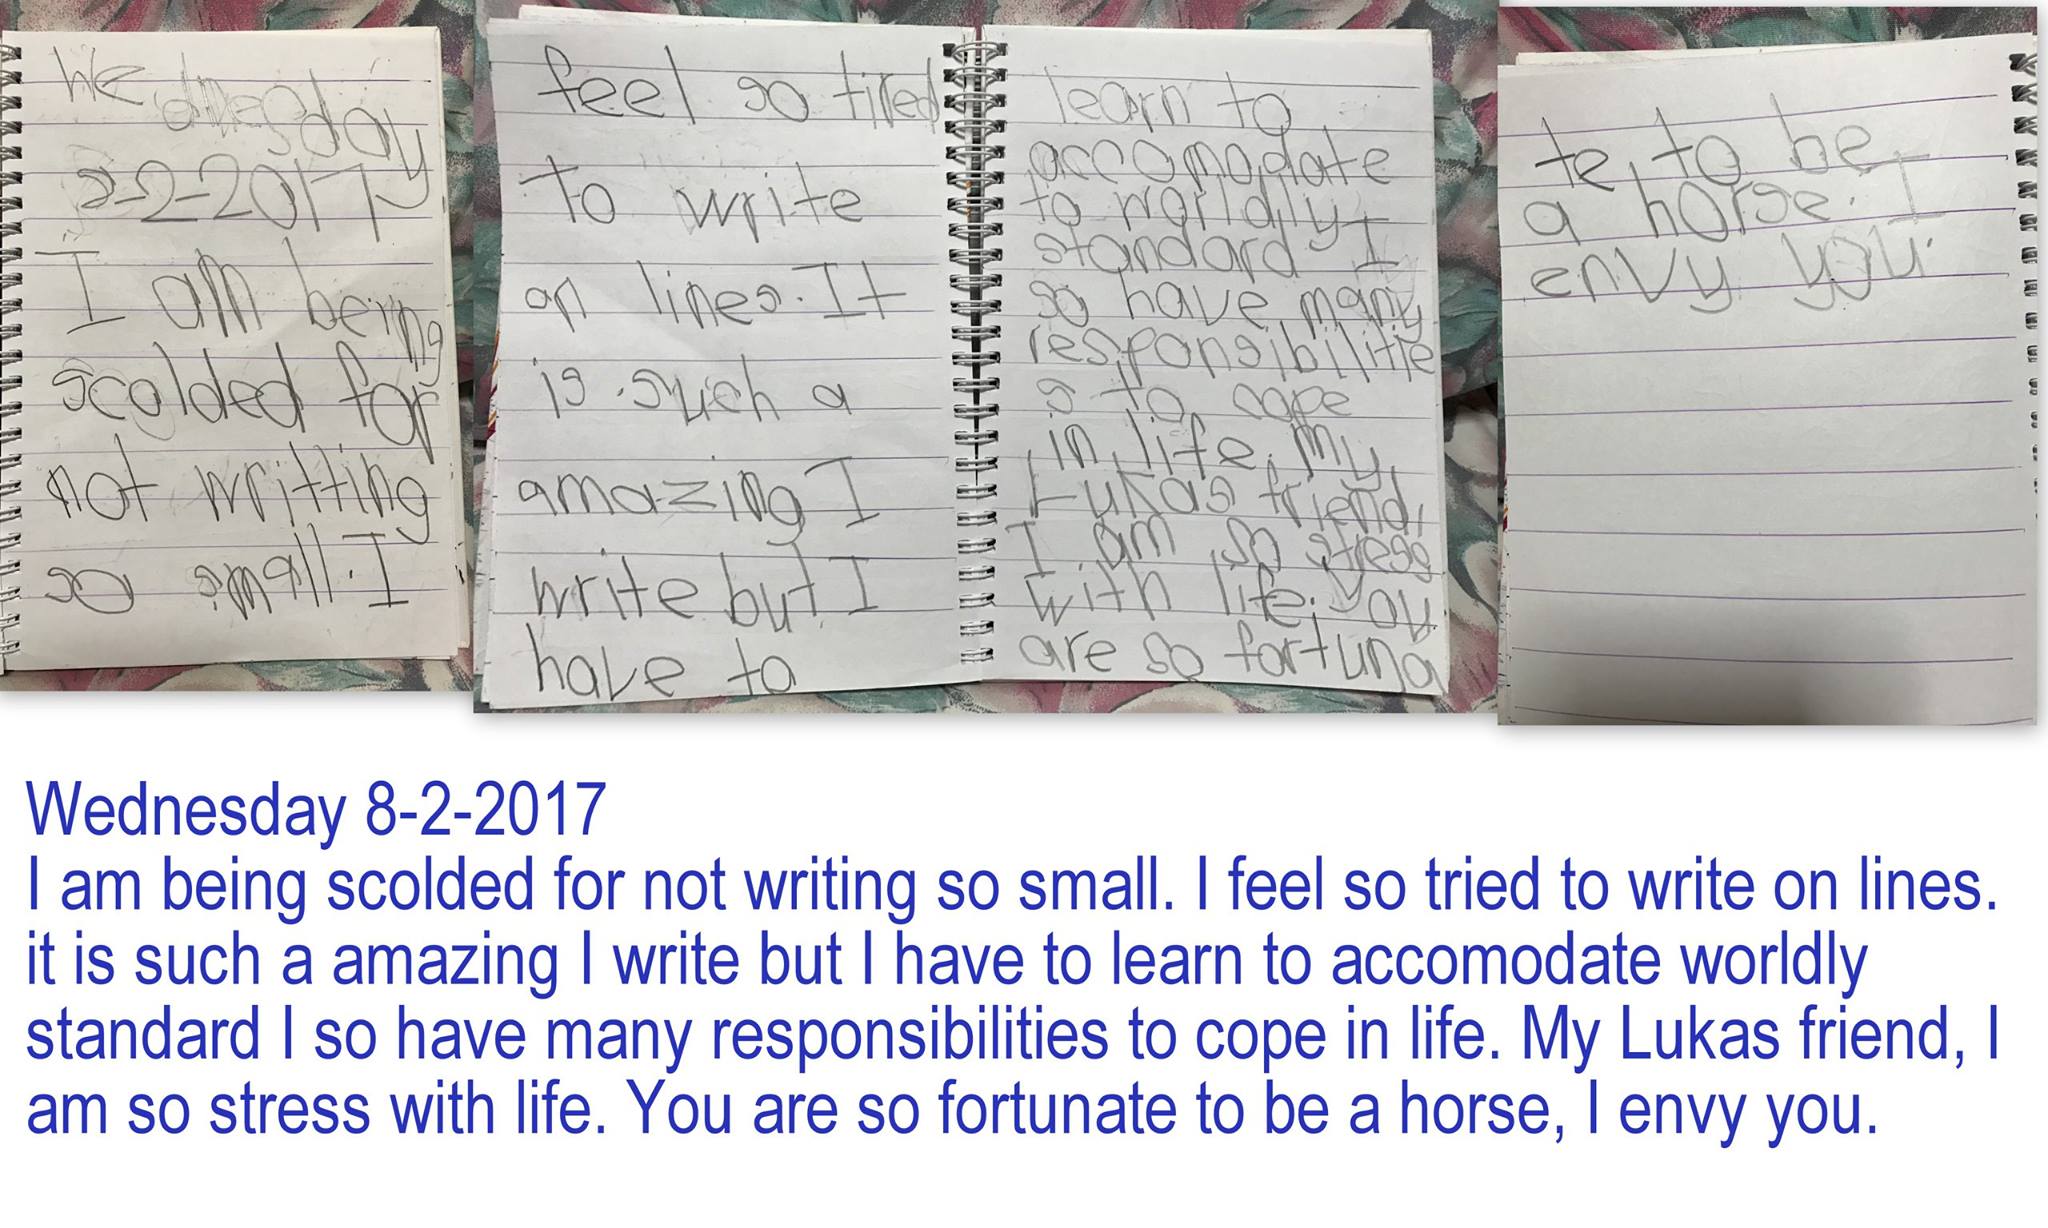 Wednesday
8-2-2017
I am being
scolded for
not writting
so small. I
feel so tired
to write
on lines. It
is such a
amazing I
write but I
have to
learn to
accomodate
to worldly
standard I
so have many
responsibilitie
s to cope
in life, my
Lukas friend,
I am so stress
with life. You
are so fortuna
te, to be
a horse. I
envy you.
Wednesday 8-2-2017
I am being scolded for not writing so small. I feel so tried to write on lines.
it is such a amazing I write but I have to learn to accomodate worldly
standard I so have many responsibilities to cope in life. My Lukas friend, I
am so stress with life. You are so fortunate to be a horse, I envy you.